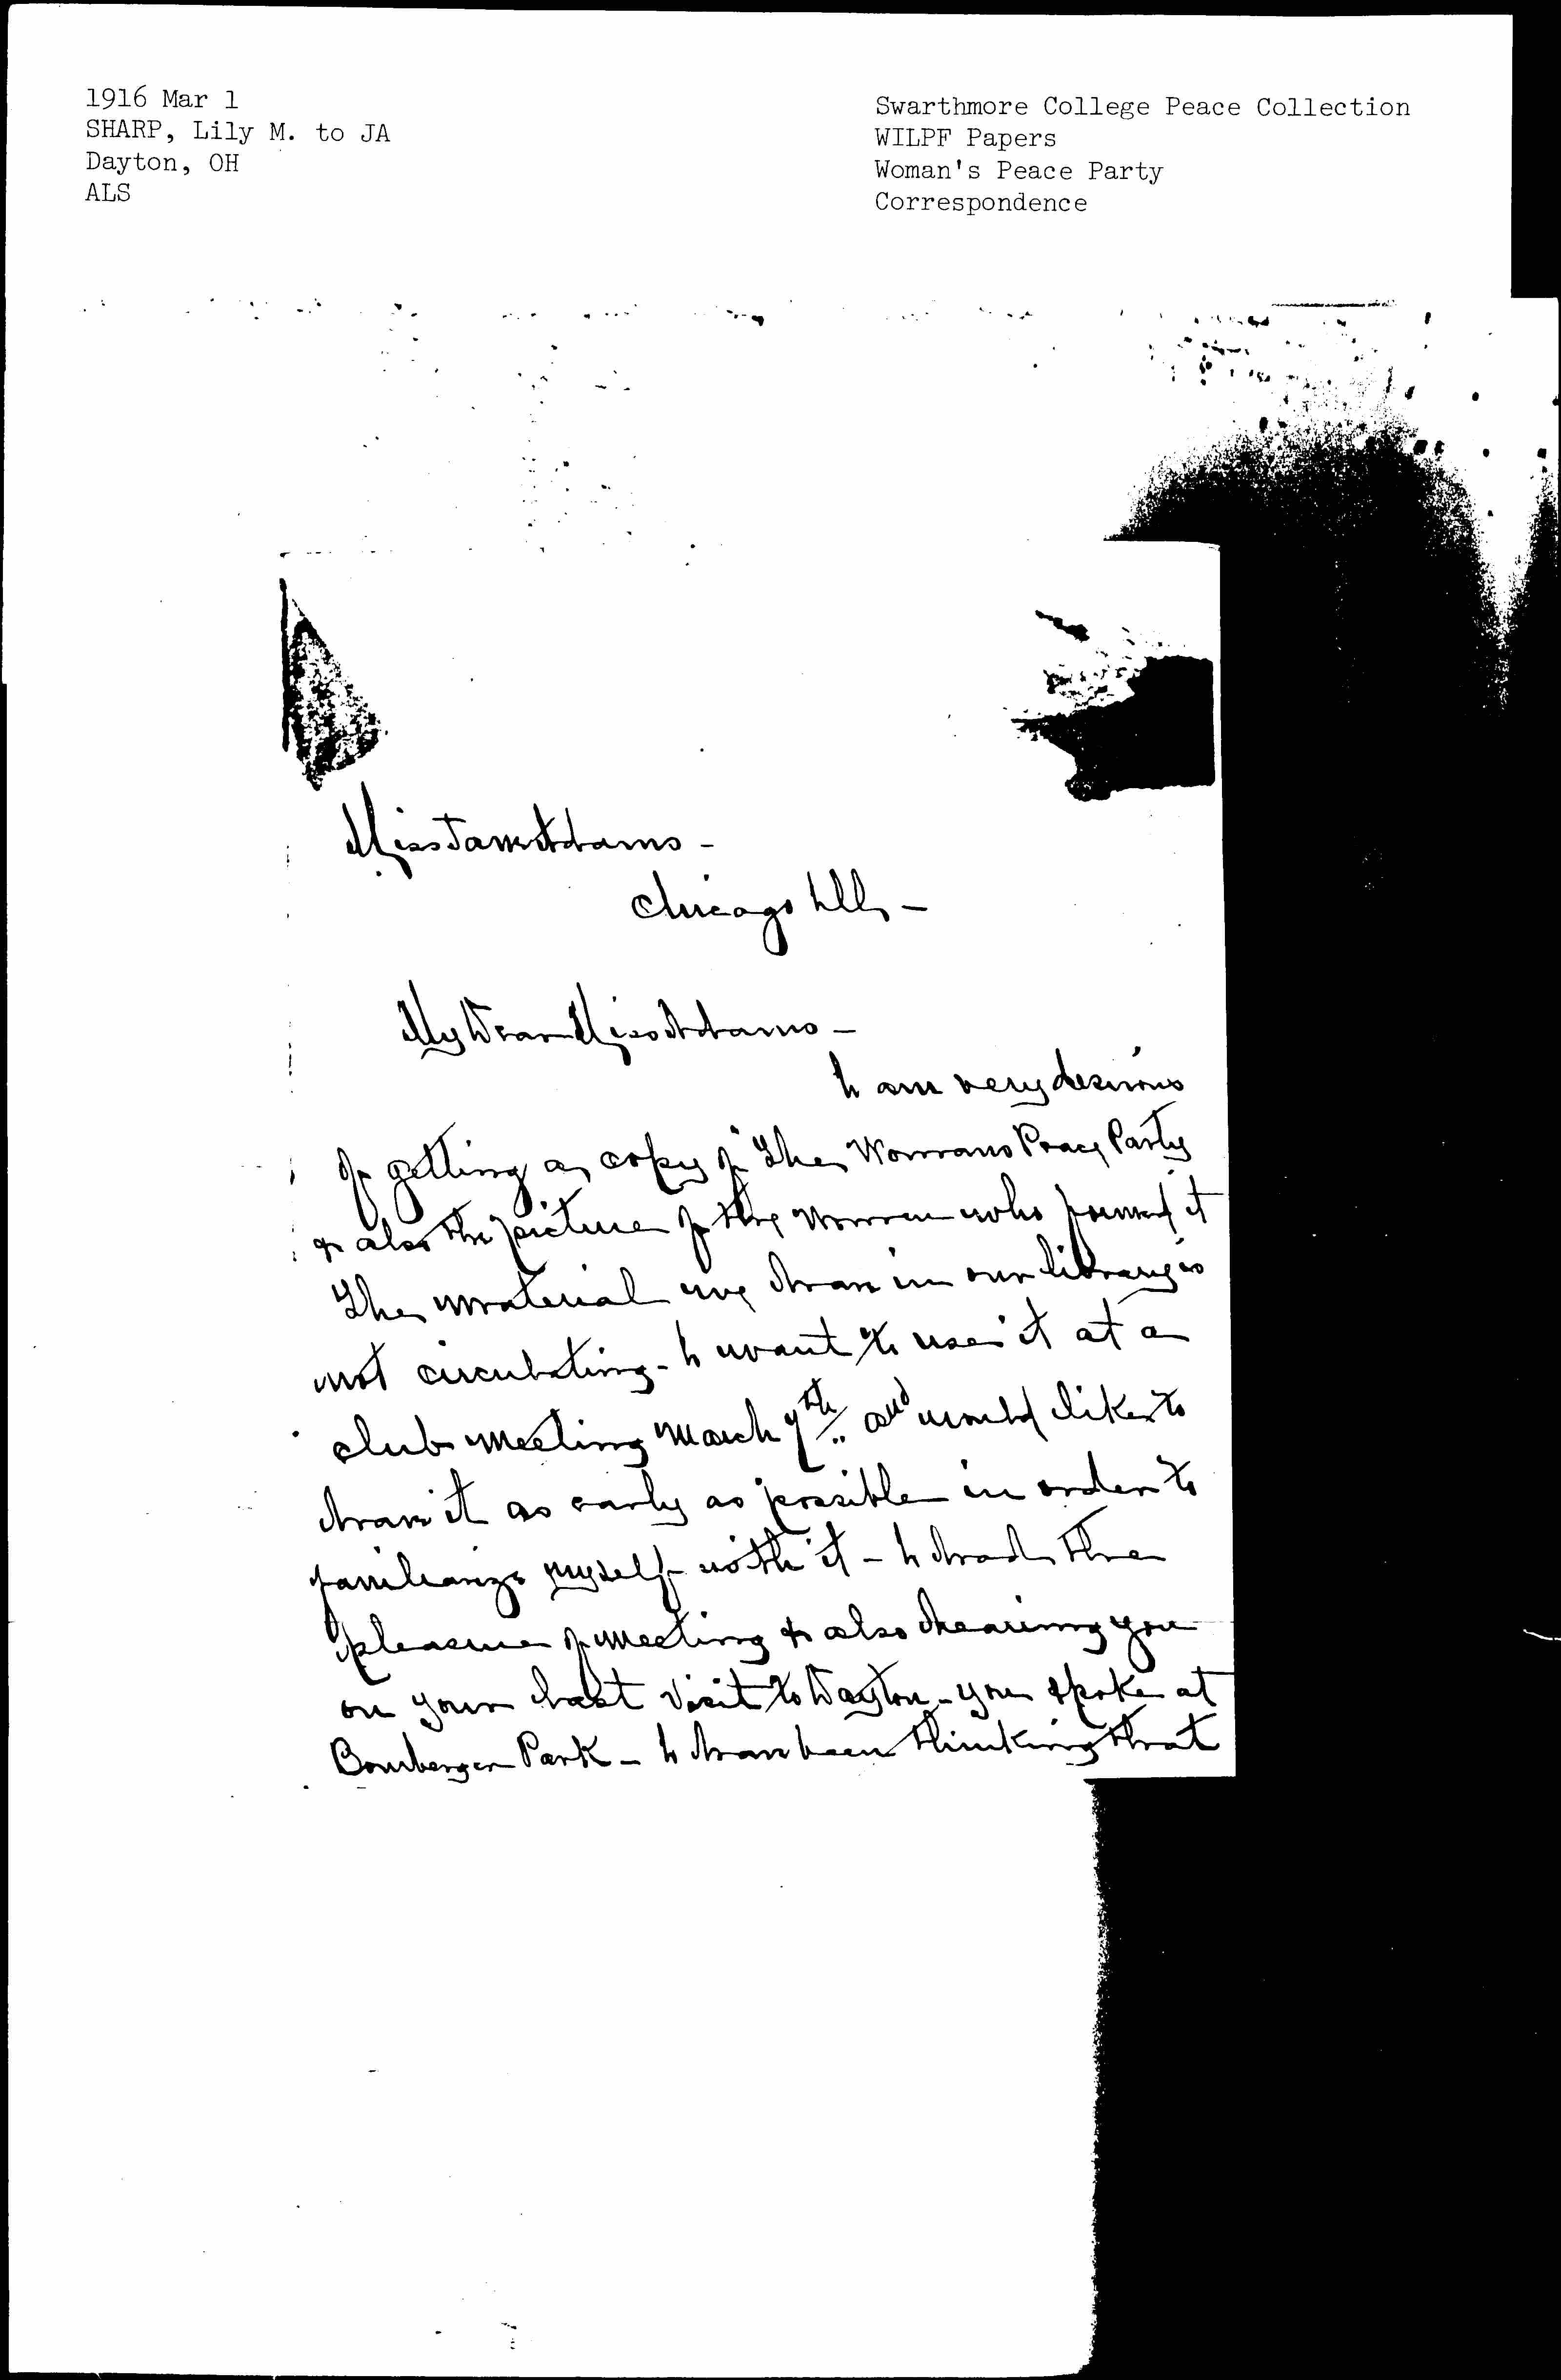 1916 Mar 1
SHARP, Lily M. to JA
Dayton, OH
ALS
Swarthmore College Peace Collection
WILPF Papers
Woman's Peace Party
Correspondence
Miss Jane Addams -
Chicago Ills -
My Dear Miss Addams -
I am very desirous
of getting a copy of The Womans Peace Party
& also the picture of the women who formed it
The material we have in our library is
not circulating - I want to use it at a
club meeting March 9th and would like to
have it as early as possible in order to
familiarize myself with it - I had the
pleasure of meeting & also hearing you
on your last visit to Dayton - you spoke at
Bomberger Park - I have been thinking that